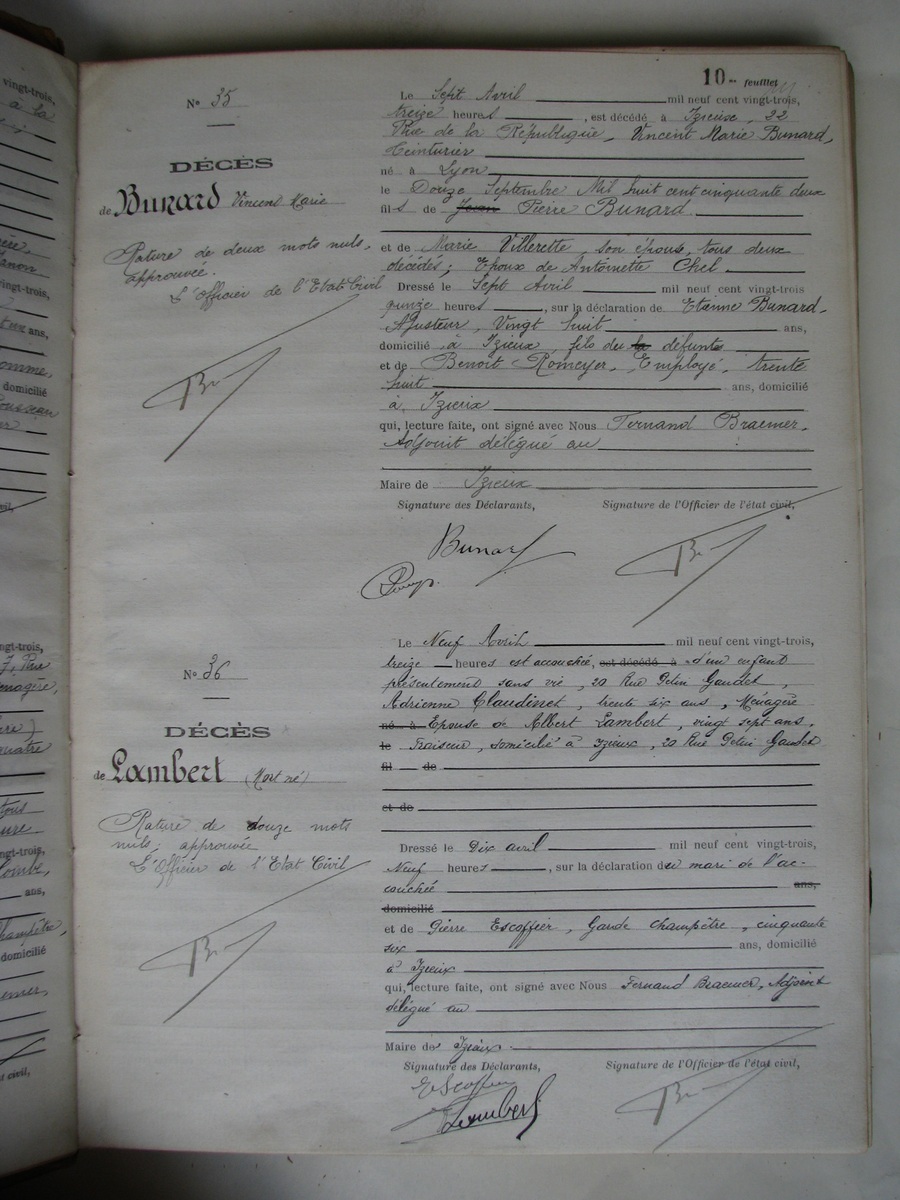 10me feuillet
N° 35
DÉCÈS
de Bunard Vincent Marie
Rature de deux mots nuls,
approuvée.
L'Officier de l'Etat Civil
Le Sept Avril mil neuf cent vingt-trois,
treize heures, est décédé à Izieux, 22
Rue de la République, Vincent Marie Bunard,
teinturier
né à Lyon
le Douze Septembre Mil huit cent cinquante deux
fils de Jean Pierre Bunard
et de Marie Villerette, son épouse, tous deux
décédés; Epoux de Antoinette Chel
Dressé le Sept Avril mil neuf cent vingt-trois
quinze heures, sur la déclaration de Etienne Bunard,
Ajusteur, Vingt huit ans,
domicilié à Izieux, fils du la défunt
et de Benoit Romeyer, Employé, trente
huit ans, domicilié
à Izieux
qui, lecture faite, ont signé avec Nous Fernand Braemer,
Adjoint délégué au
Maire de Izieux
Signature des Déclarants, Signature de l'Officier de l'état civil,
Bunard
N° 36
DÉCÈS
de Lambert (Mort né)
Rature de douze mots
nuls, approuvée
L'Officier de l'Etat Civil
Le Neuf Avril mil neuf cent vingt-trois,
treize heures est accouchée, est décédé à d'un enfant
présentement sans vie, 20 Rue Petin Gaudet,
Adrienne Claudinet, trente six ans, Ménagère
né à Epouse de Albert Lambert, vingt sept ans,
le Fraiseur, domicilié à Izieux, 20 Rue Petin Gaudet
fil de
et de
Dressé le Dix avril mil neuf cent vingt-trois,
Neuf heures, sur la déclaration du mari de l'ac-
couchée ans,
domicilié
et de Pierre Escoffier, Garde champêtre, cinquante
six ans, domicilié
à Izieux
qui, lecture faite, ont signé avec Nous Fernand Braemer, Adjoint
délégué au
Maire de Izieux
Signature des Déclarants, Signature de l'Officier de l'état civil,
Escoffier
Lambert